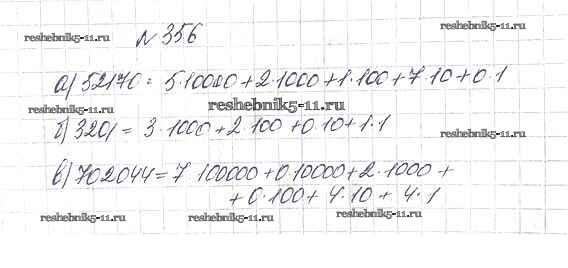 reshebnik5-11.ru № 356 reshebnik5-11.ru
а) 52170 = 5·10000 + 2·1000 + 1·100 + 7·10 + 0·1
reshebnik5-11.ru reshebnik5-11.ru
б) 3201 = 3·1000 + 2·100 + 0·10 + 1·1
reshebnik5-11.ru
в) 702044 = 7·100000 + 0·10000 + 2·1000 +
+ 0·100 + 4·10 + 4·1
reshebnik5-11.ru reshebnik5-11.ru reshebnik5-11.ru